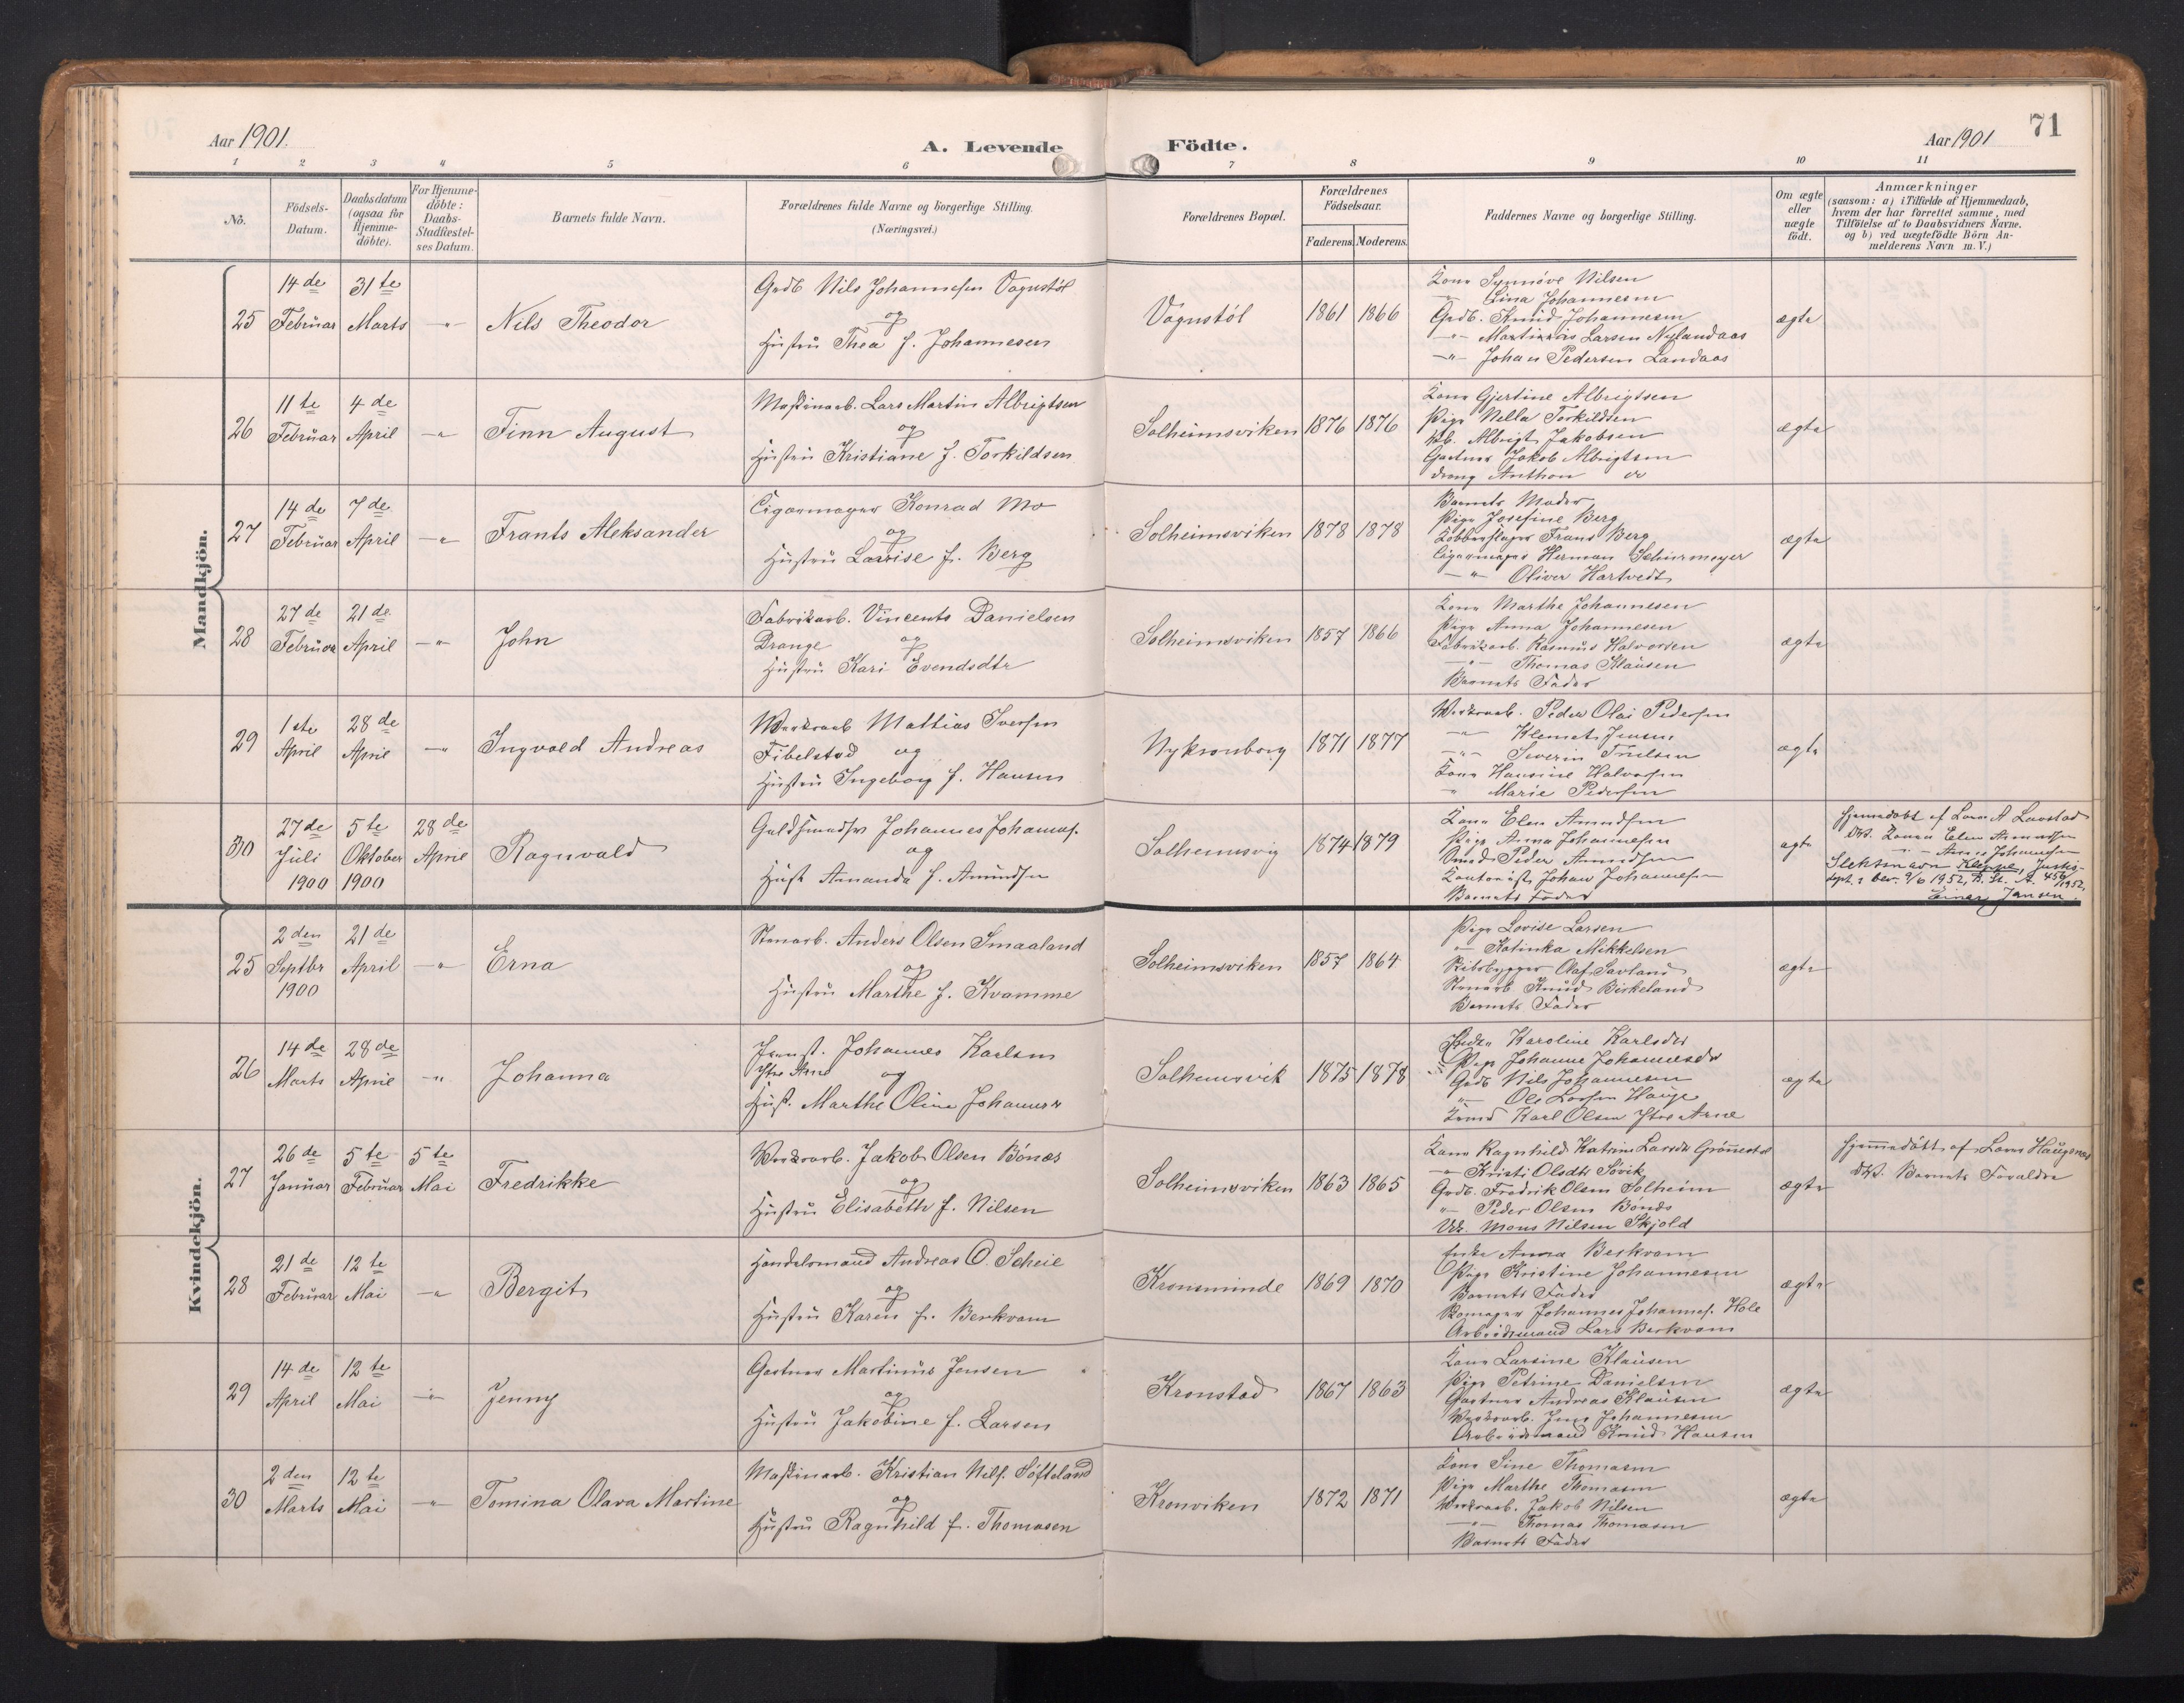 Aar 1901.
A. Levende
Födte.
Aar 1901
71
1 2 3 4 5 6 7 8 9 10 11
No.
Födsels-
Datum.
Daabsdatum
(ogsaa för
Hjemme-
döbte).
For Hjemme-
döbte:
Daabs-
Stadfæstel-
ses Datum.
Barnets fulde Navn.
Forældrenes fulde Navne og borgerlige Stilling.
(Næringsvei.)
Forældrenes Bopæl.
Forældrenes
Födselsaar.
Faderens. Moderens.
Faddernes Navne og borgerlige Stilling.
Om ægte
eller
uægte
födt.
Anmærkninger
(saasom: a) i Tilfælde af Hjemmedaab,
hvem der har forrettet samme, med
Tilföielse af to Daabsvidners Navne.
og b) ved uægtefödte Börn An-
melderens Navn m.V.)
Mandkjön.
25
14 de
Februar
31 te
Marts
-"-
Nils Theodor
Grdb Nils Johannesen Vognstöl
og
Hustru Thea f. Johannesen
Vognstöl
1861 1866
Kone Synnöve Nilsen
-"- Lina Johannesen
Grdb. Knud Johannesen
-"- Martinus Larsen Nylandaas
-"- Johan Pedersen Landaas
ægte
26
11 te
Februar
4 de
April
-"-
Finn August
Maskinarb. Lars Martin Albrigtsen
og
Hustru Kristiane f. Torkildsen
Solheimsviken
1876 1876
Kone Gjertine Albrigtsen
Pige Nella Torkildsen
Albrigt Jakobsen
Gartner Jakob Albrigtsen
dreng Anthon do
ægte
27
14 de
Februar
7 de
April
-"-
Frants Aleksander
Cigarmager Konrad Mo
og
Hustru Lovise f. Berg
Solheimsviken
1878 1878
Barnets Moder
Pige Josefine Berg
Kobberslager Frans Berg
Cigarmager Herman Schürmeyer
-"- Oliver Hartvedt
ægte
28
27 de
Februar
21 de
April
-"-
John
Fabrikarb. Vincents Danielsen
Drange og
Hustru Kari Evendsdtr
Solheimsviken
1857 1866
Kone Marthe Johannesen
Pige Anna Johannesen
Fabrikarb. Rasmus Halvorsen
-"- Thomas Klausen
Barnets Fader
ægte
29
1 ste
April
28 de
April
-"-
Ingvald Andreas
Værksarb Mathias Iversen
Fibelstad og
Hustru Ingeborg f. Hansen
Nykronborg
1871 1877
Værksarb. Peder Olai Pedersen
-"- Klemet Jensen
-"- Severin
Kone Hansine Halvorsen
" Marie Pedersen
ægte
30
27 de
Juli
1900
5 te
Oktober
1900
28 de
April
Ragnvald
Guldsmedsv Johannes Johannes.
og
Hust Amanda f. Amundsen
Solheimsvig
1874 1879
Kone Elen Amundsen
Pige Anna Johannesen
Smed Peder Amundsen
Kontorist Johan Johannesen
Barnets Fader
ægte
Hjemmedøbt af Lars A Lavstad
DV. Konen Elen Amundsen
-"- Anna Johannesen
Slektsnavn Kleppe, Justis-
dept.s bev. 9/6 1952, 456/1952.
Einar Jansen.
Kvindekjön.
25
2 den
Septbr
1900
21 de
April
-"-
Erna
Stenarb. Anders Olsen Smaaland
og
Hustru Marthe f. Kvamme
Solheimsviken
1857 1864
Pige Lovise Larsen
-"- Katinka Mikkelsen
Skibsbygger Olaf Savland
Stenarb Knud Birkeland
Barnets Fader
ægte
26
14 de
Marts
28 de
April
-"-
Johanna
Johannes Karlsen
Ytre Arne
og
Hust. Marthe Olina Johannesen
Solheimsvik
1875 1878
Karoline Karlsdtr
Pige Johanne Johannesdtr
Grdb Nils Johannesen
-"- Ole Larsen Hauge
Karl Olsen Ytre Arne
ægte
27
26 de
Januar
5 te
Februar
5 te
Mai
Fredrikke
Værksarb. Jakob Olsen Bönes
og
Hustru Elisabeth f. Nilsen
Solheimsviken
1863 1865
Kone Ragnhild Katrine Larsdtr Grönnestad
-"- Kristi Olsdtr Sövik
Grdb. Fredrik Olsen Solheim
"- Peder Olsen Bönes
Mons Nilsen Skjold
ægte
Hjemmedöbt af Lars Haugenes
DV. Barnets Forældre
28
21 de
Februar
12 te
Mai
-"-
Bergit
Handelsmand Andreas O. Scheie
og
Hustru Karen f. Berkvam
Kronsminde
1869 1870
Enke Anna Berkvam
Pige Kristine Johannesen
Barnets Fader
Skomager Johannes Johannes. Hole
Arbeidsmand Lars Berkvam
ægte
29
14 de
April
12 te
Mai
-"-
Jenny
Gartner Martinus Jensen
og
Hustru Jakobine f. Larsen
Kronstad
1867 1863
Kone Larsine Klausen
Pige Petrine Danielsen
Gartner Andreas Klausen
Værksarb. Jens Johannesen
Arbeidsmand Knud Hansen
ægte
30
2 den
Marts
12 te
Mai
-"-
Tomina Olava Martine
Maskinarb. Kristian Nils. Söfteland
og
Hustru Ragnhild f. Thomasen
Kronviken
1872 1871
Kone Sine Thomasen
Pige Marthe Thomasen
Værksarb. Jakob Nilsen
-"- Thomas Thomasen
Barnets Fader
ægte